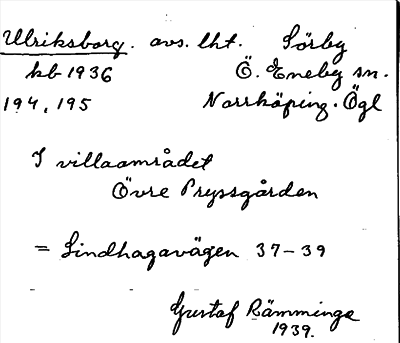 Ulriksborg. avs. lht. Sörby
kb 1936 Ö. Eneby sn.
194, 195 Norrköping. Ögl
I villaområdet
Övre Pryssgården
= Lindhagavägen 37-39
Gustaf Rämminge
1939.